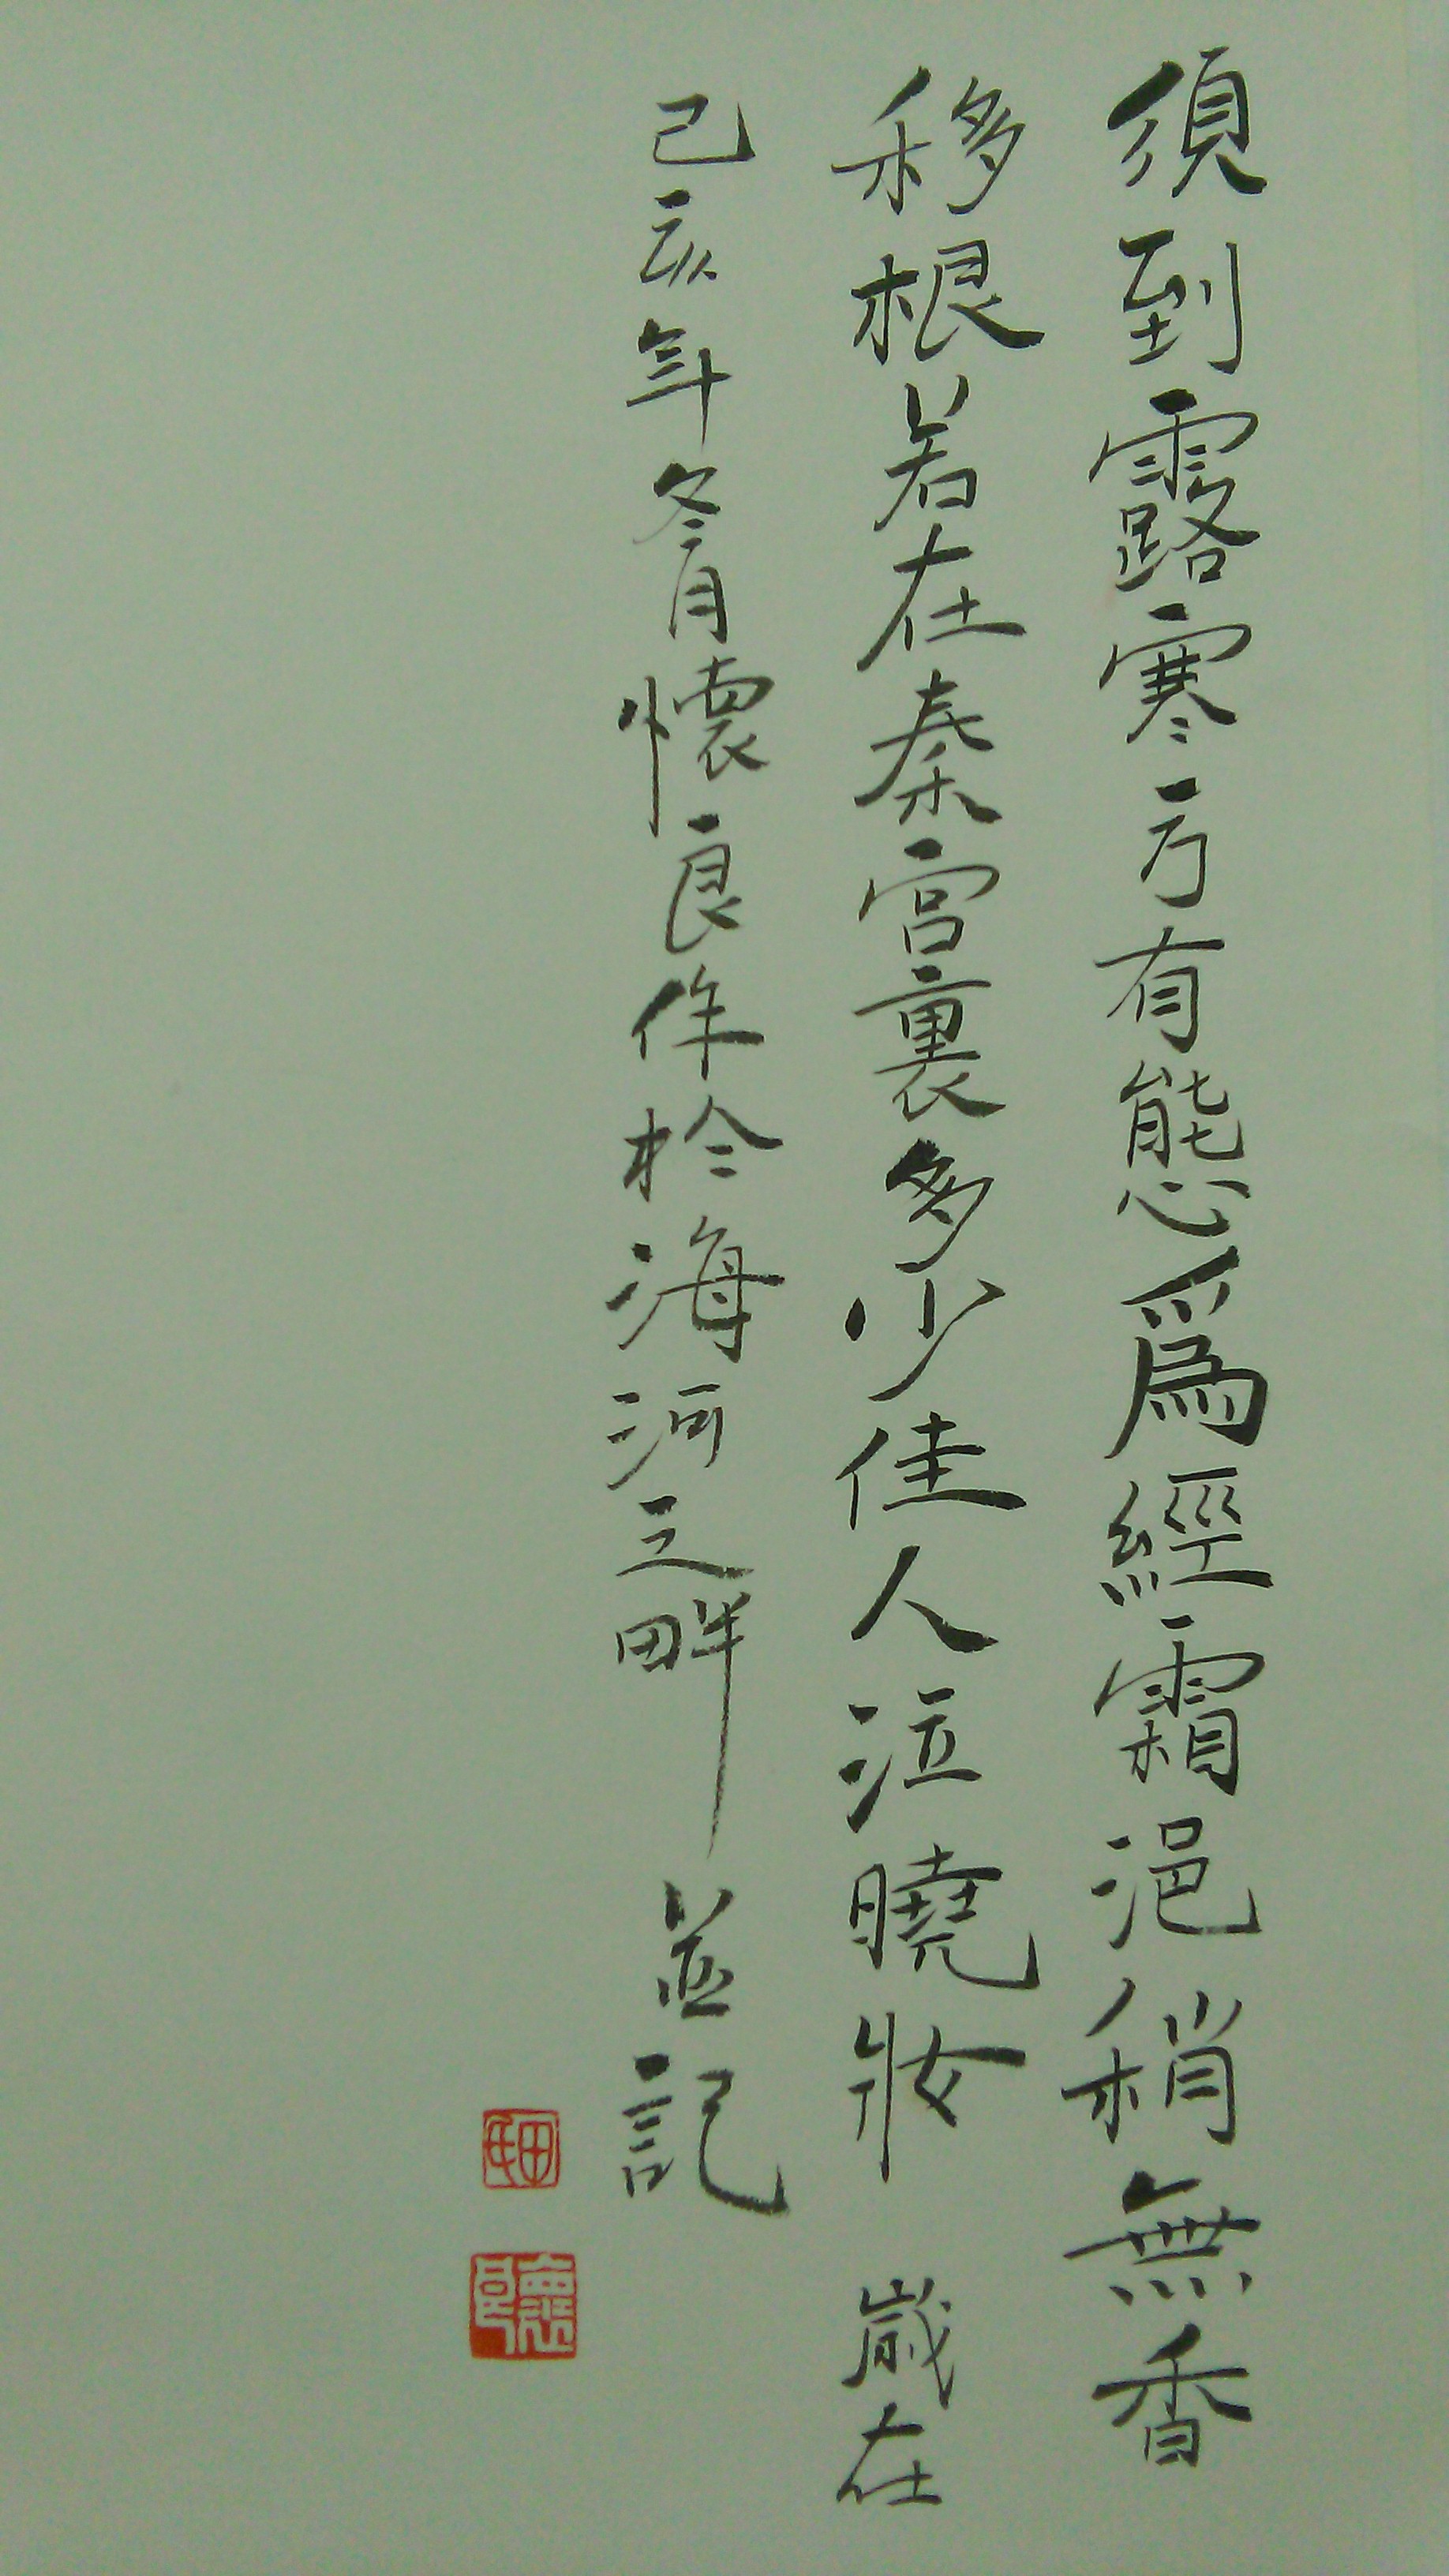 須到露寒方有態爲經霜浥稍無香
移根若在秦宮裏多少佳人泣曉妝 歳在
己亥年冬月懷良作於海河之畔 並記